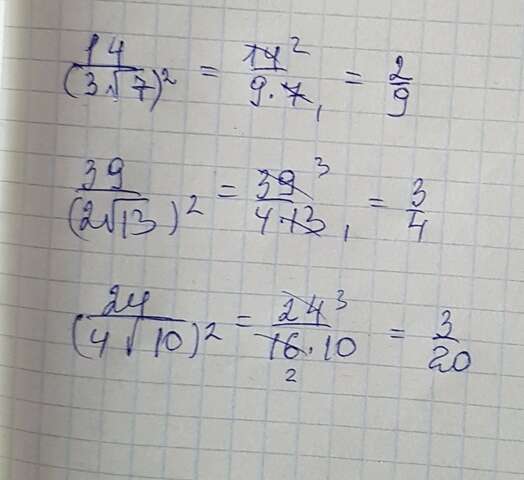 14/(3√7)² = 14²/9·7₁ = 2/9
39/(2√13)² = 39³/4·13₁ = 3/4
24/(4√10)² = 24³/16₂·10 = 3/20